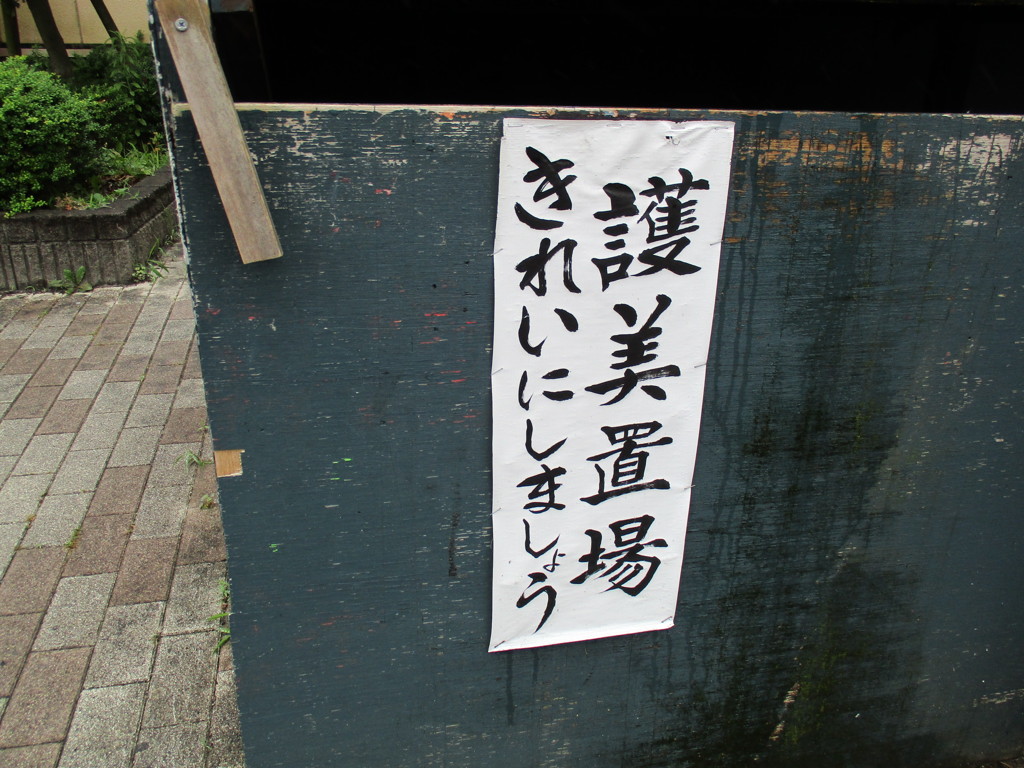 護美置場
きれいにしましょう